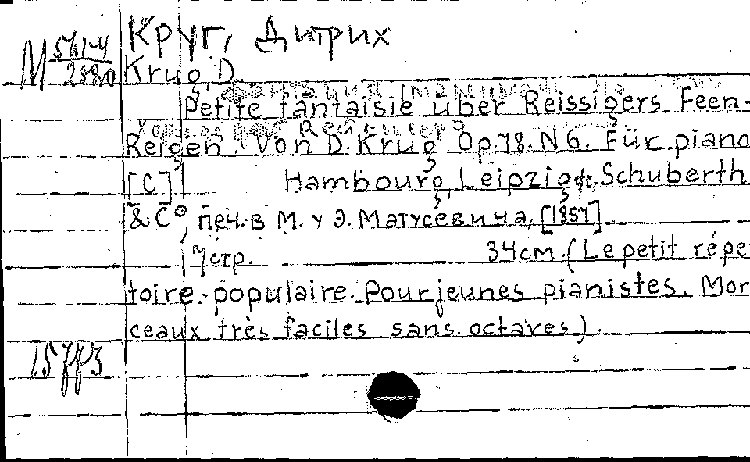 Круг, Дитрих
М 561-4
2580
Krug, D.
Petite fantaisie über Reissigers Feen-
Reigen. Von D. Krug. Op. 78. N 6. Für piano
[C] Hambourg, Leipzig, Schuberth
& C°, печ. в М. у Э. Матусевича, [1857].
7 стр. 34 см. (Le petit réper
toire populaire. Pour jeunes pianistes. Mor
ceaux très faciles sans octaves).